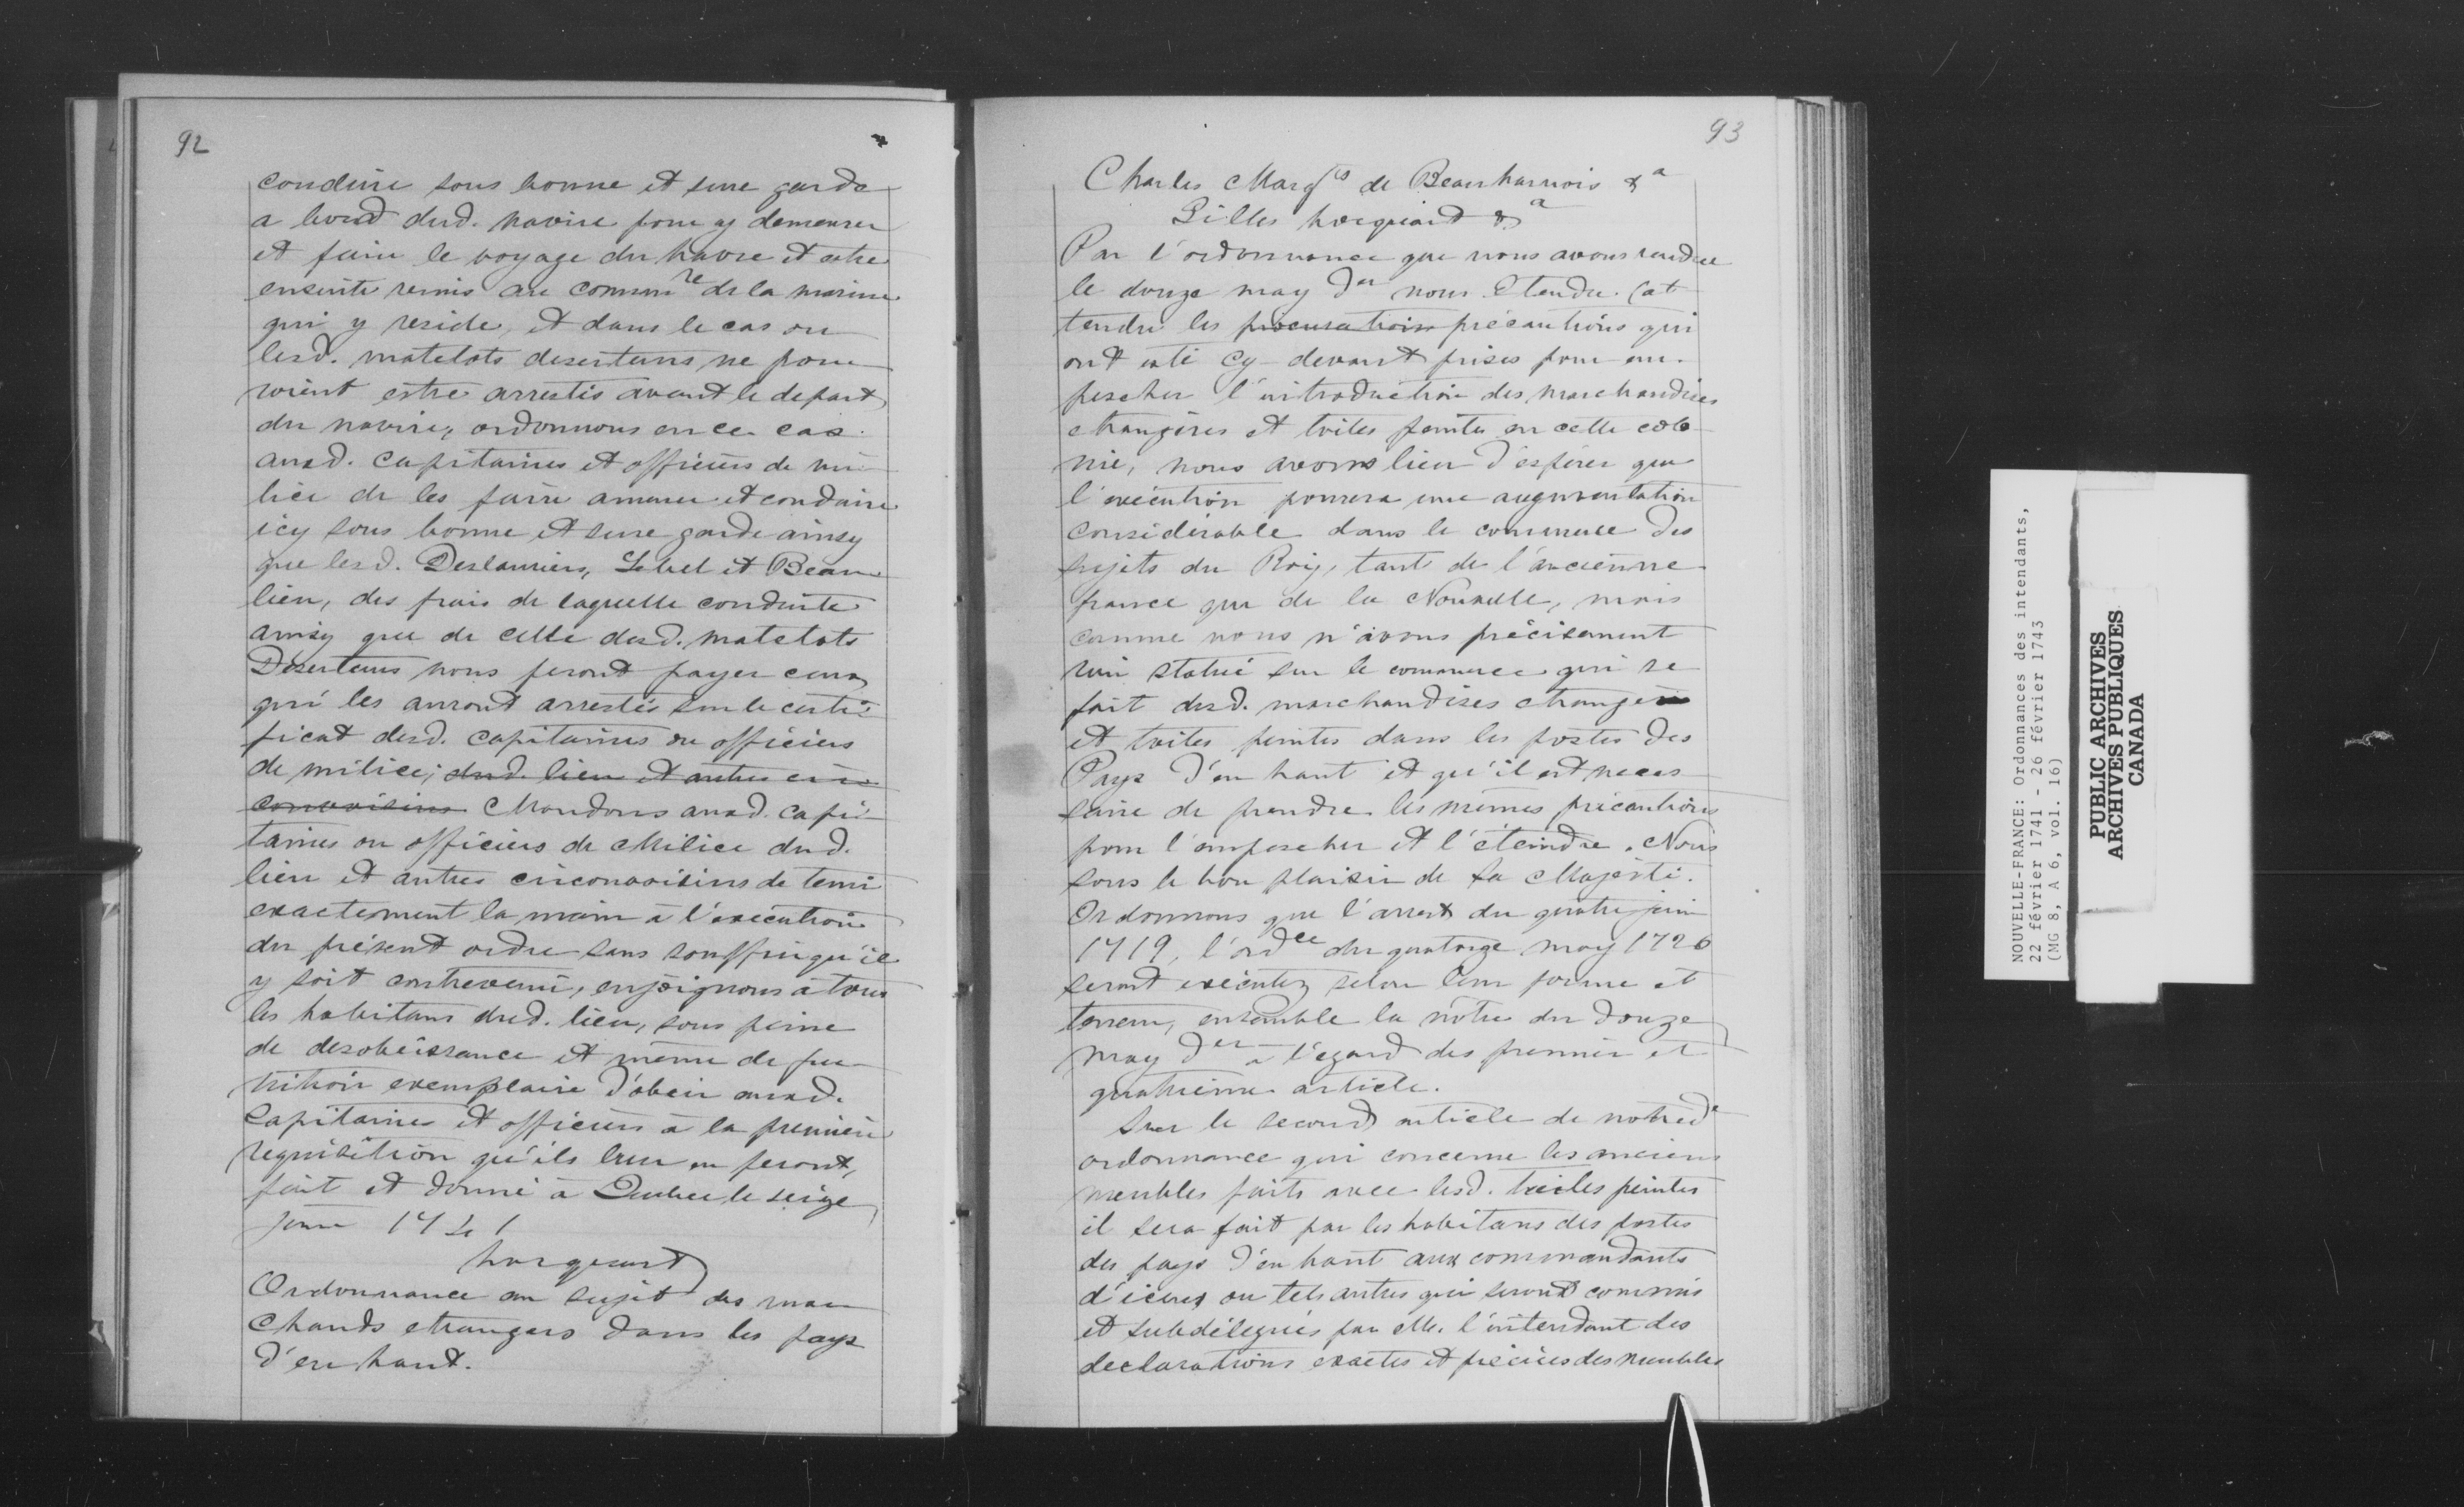 92
conduire sous bonne et sure garde
a bord dud. navire pour y demeurer
et faire le voyage du havre et estre
ensuite remis au commre de la marine
qui y reside, et dans le cas ou
lesd. matelots deserteurs ne pour
roient estre arrestés avant le depart
du navire, ordonnons en ce cas
auxd. capitaines et officiers de mi
lice de les faire amener et conduire
icy sous bonne et sure garde ainsy
que lesd. Deslauriers, Lebel et Beau
lieu, des frais de laquelle conduite
ainsy que de celle desd. matelots
Deserteurs nous ferons payer ceux
qui les auront arrestés sur le certi
ficat desd. capitaines ou officiers
de milice; dud. lieu et autres cir
convoisins Mandons auxd. capi
taines ou officiers de Milice dud.
lieu et autres circonvoisins de tenir
exactement la main à l'exécution
du présent ordre sans souffrir qu'il
y soit contrevenu, enjoignons à tous
les habitans dud. lieu, sous peine
de desobeissance et même de pu
nition exemplaire d'obeir auxd.
Capitaines et officiers à la première
requisition qu'ils leur en feront,
fait et donné à Quebec le seize
juin 1741
hocquart
Ordonnance au sujet des mar
chands etrangers dans les pays
d'en haut.
93
Charles Marqis de Beauharnois &a
Gilles hocquart &a
Par l'ordonnance que nous avons rendue
le douze may der nous Etendre (at
tendre les procurations précautions qui
ont esté cy-devant prises pour em-
pescher l'introduction des marchandises
etrangères et toiles peintes en cette colo
nie, nous avons lieu d'espérer que
l'exécution pourera une augmentation
considérable dans le commerce des
sujets du Roy, tant de l'ancienne
france que de la Nouvelle, mais
comme nous n'avons précisement
rien statué sur le commerce qui se
fait desd. marchandises etrangères
et toiles peintes dans les postes des
Pays d'en haut et qu'il est neces
saire de prendre les mêmes précautions
pour l'empescher et l'éteindre. Nous
sous le bon plaisir de Sa Majesté.
Ordonnons que l'arrest du quatre juin
1719, l'ordce du quatorze may 1726
seront exécutez selon leur forme et
teneur, ensemble la nôtre du douze
may der à l'égard des premier et
quatrième article.
Sur le second article de notred.
ordonnance qui concerne les anciens
meubles faits avec lesd. toiles peintes
il sera fait par les habitans des postes
des pays d'en haut aux commandants
d'iceux ou tels autres qui seront commis
et subdélegués par Mr. l'intendant des
declarations exactes et précises des meubles
NOUVELLE-FRANCE: Ordonnances des intendants,
22 février 1741 - 26 février 1743
(MG 8, A 6, vol. 16)
PUBLIC ARCHIVES
ARCHIVES PUBLIQUES
CANADA